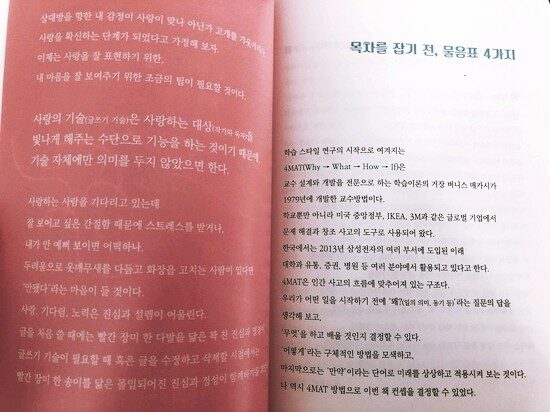 상대방을 향한 내 감정이 사랑이 맞나 아닌가 고개를
사랑을 확신하는 단계가 되었다고 가정해 보자.
이제는 사랑을 잘 표현하기 위한,
내 마음을 잘 보여주기 위한 조금의 팁이 필요할 것이다.
사랑의 기술(글쓰기 기술)은 사랑하는 대상(작가와 독자)을
빛나게 해주는 수단으로 기능을 하는 것이기 때문에,
기술 자체에만 의미를 두지 않았으면 한다.
사랑하는 사람을 기다리고 있는데
잘 보이고 싶은 간절함 때문에 스트레스를 받거나,
내가 안 예뻐 보이면 어떡하나.
두려움으로 옷매무새를 다듬고 화장을 고치는 사람이 있다면
'안됐다'라는 마음이 들 것이다.
사랑, 기다림, 노력은 진심과 설렘이 어울린다.
글을 처음 쓸 때에는 빨간 장미 한 다발을 닮은 꽉 찬 진심과 열정이
글쓰기 기술이 필요할 때 혹은 글을 수정하고 삭제할 시점에서는
빨간 장미 한 송이를 닮은 몰입되어진 진심과 정성이
목차를 잡기 전, 물음표 4가지
학습 스타일 연구의 시작으로 여겨지는
4MAT(Why → What → How → If)은
교수 설계와 개발을 전문으로 하는 학습이론의 거장 버니스 매카시가
1979년에 개발한 교수방법이다.
학교뿐만 아니라 미국 중앙정부, IKEA, 3M과 같은 글로벌 기업에서
문제 해결과 창조 사고의 도구로 사용되어 왔다.
한국에서는 2013년 삼성전자의 여러 부서에 도입된 이래
대학과 유통, 증권, 병원 등 여러 분야에서 활용되고 있다고 한다.
4MAT은 인간 사고의 흐름에 맞추어져 있는 구조다.
우리가 어떤 일을 시작하기 전에 '왜?(일의 의미, 동기 등)'라는 질문의 답을
생각해 보고,
'무엇'을 하고 배울 것인지 결정할 수 있다.
'어떻게'라는 구체적인 방법을 모색하고,
마지막으로는 '만약'이라는 단어로 미래를 상상하고 적용시켜 보는 것이다.
나 역시 4MAT 방법으로 이번 책 컨셉을 결정할 수 있었다.